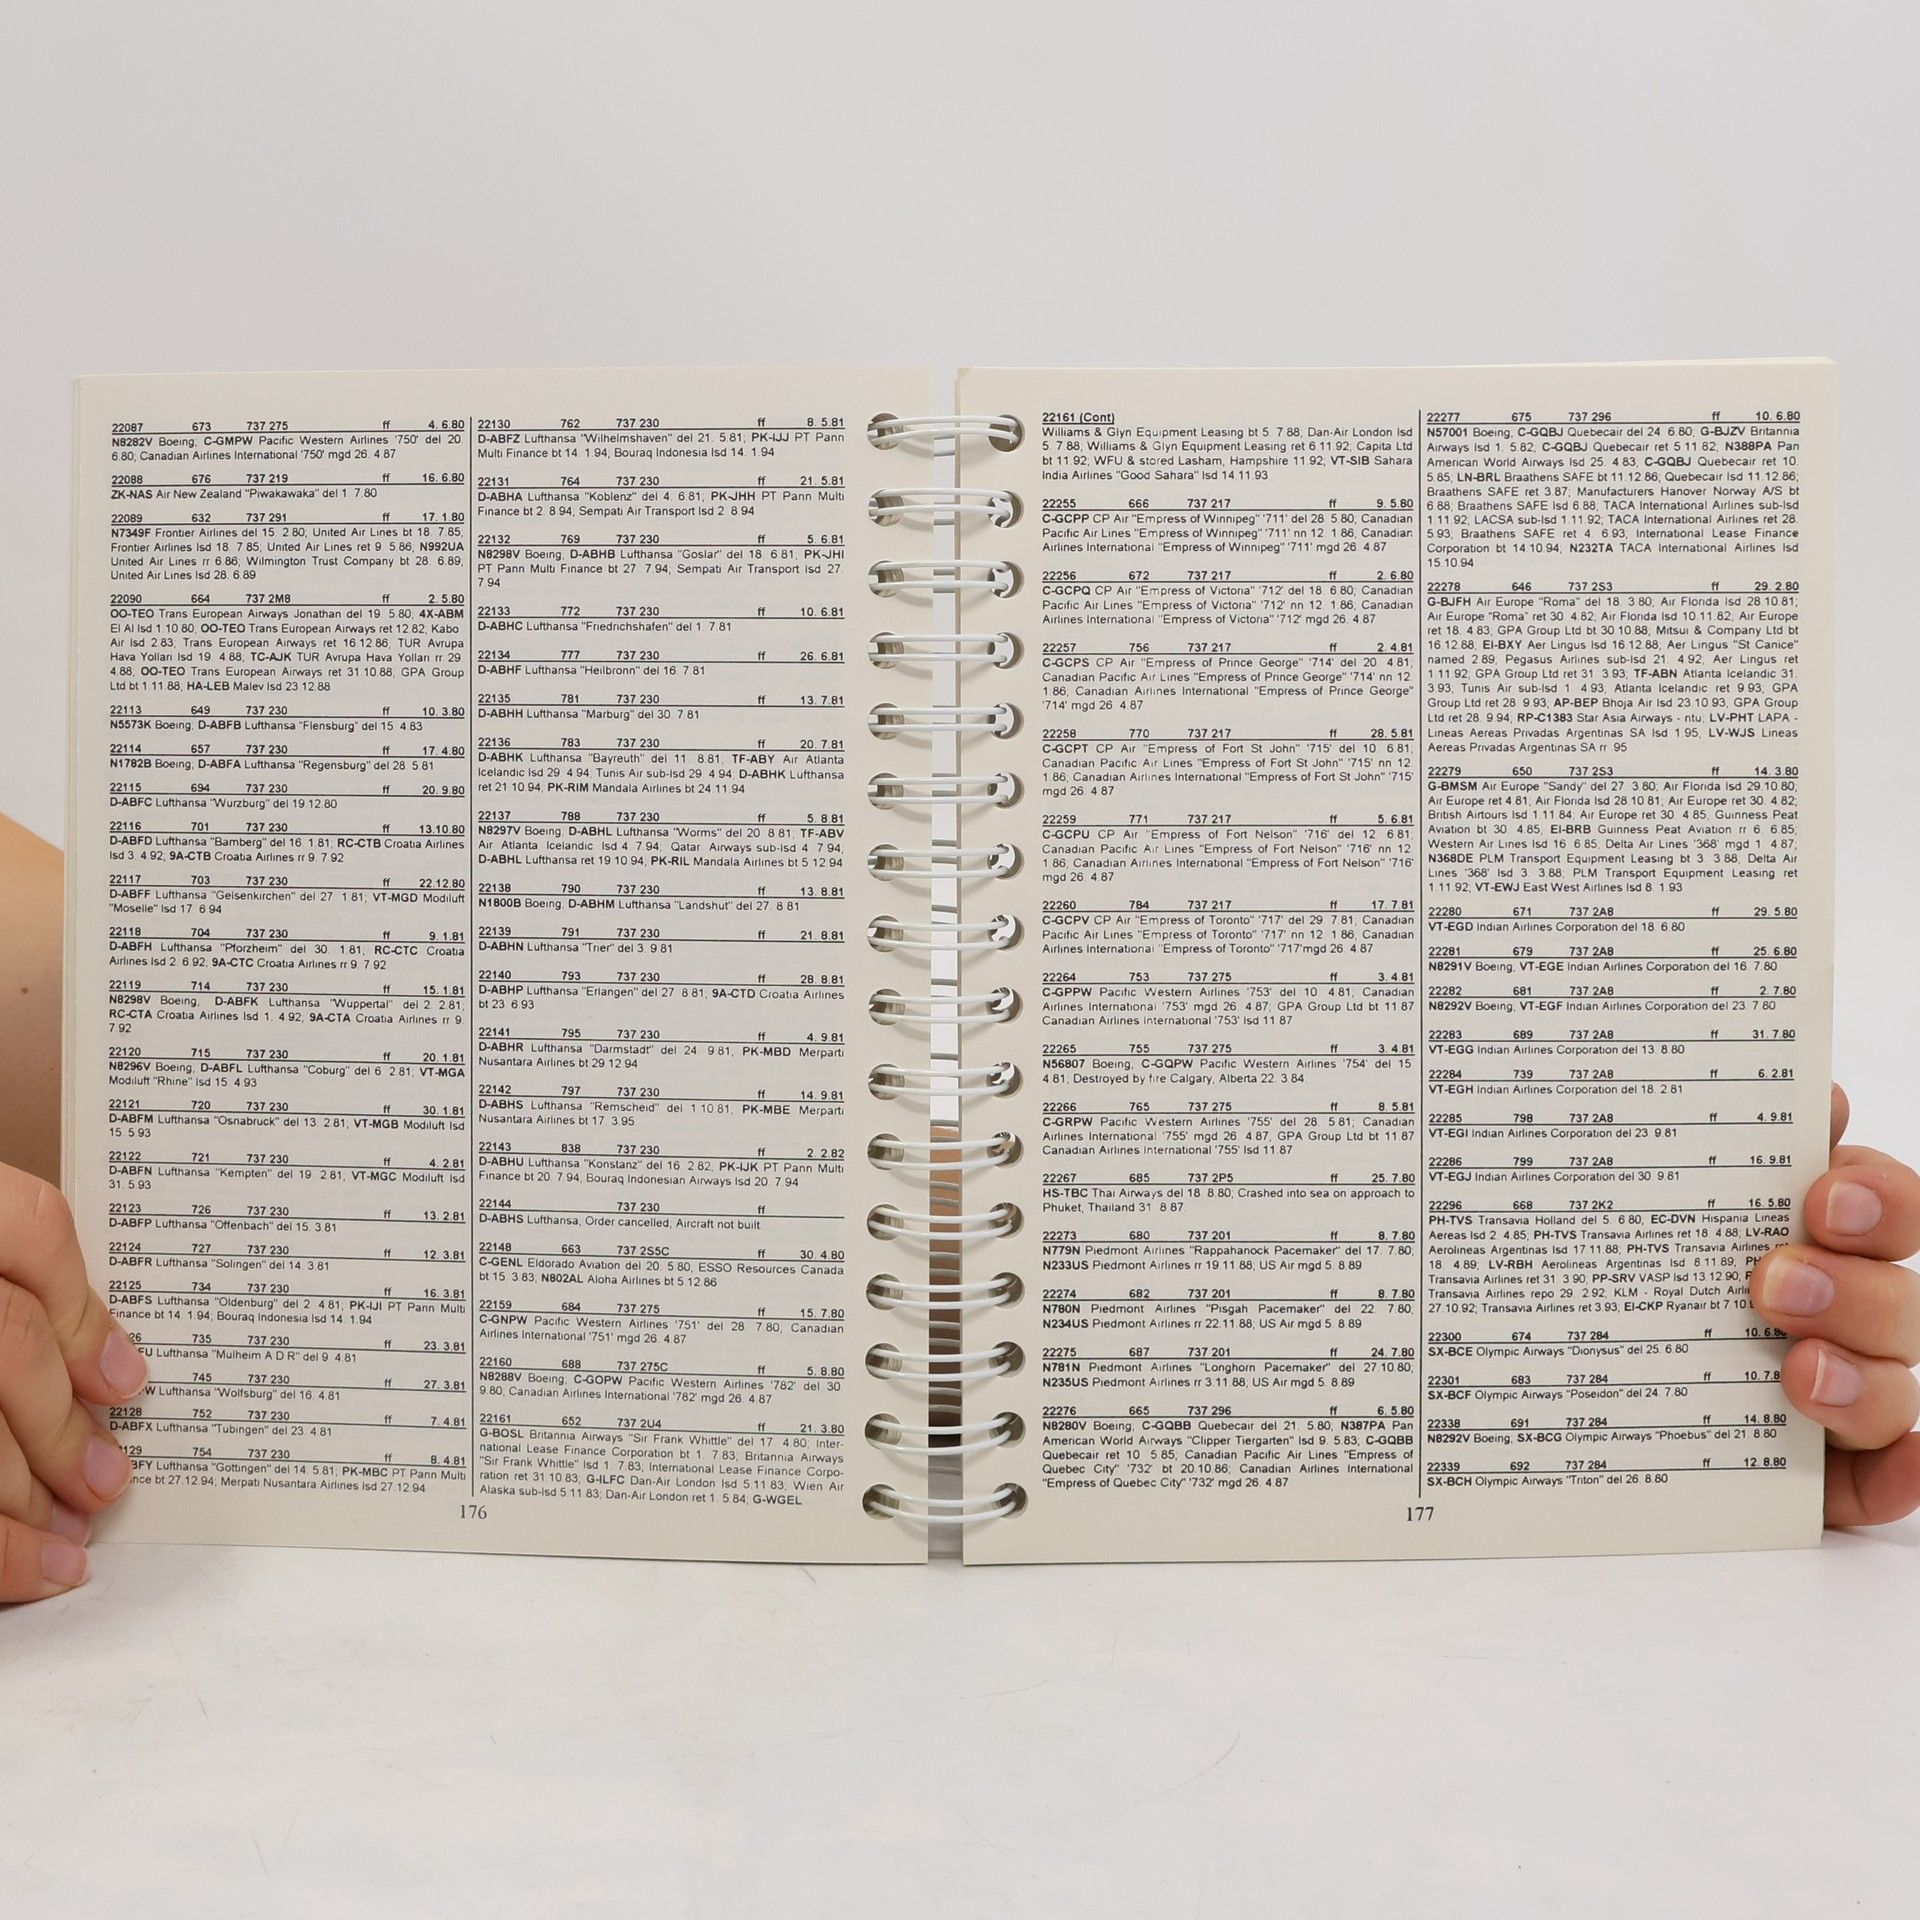 22087 673 737 275 ff 4. 6.80
N8282V Boeing; C-GMPW Pacific Western Airlines '750' del 20.
6.80; Canadian Airlines International '750' mgd 26. 4.87
22088 676 737 219 ff 16. 6.80
ZK-NAS Air New Zealand "Piwakawaka" del 1. 7.80
22089 632 737 291 ff 17. 1.80
N7349F Frontier Airlines del 15. 2.80; United Air Lines bt 18. 7.85;
Frontier Airlines lsd 18. 7.85; United Air Lines ret 9. 5.86; N992UA
United Air Lines rr 6.86; Wilmington Trust Company bt 28. 6.89,
United Air Lines lsd 28. 6.89
22090 664 737 2M8 ff 2. 5.80
OO-TEO Trans European Airways Jonathan del 19. 5.80; 4X-ABM
El Al lsd 1.10.80; OO-TEO Trans European Airways ret 12.82; Kabo
Air lsd 2.83; Trans European Airways ret 16.12.86; TUR Avrupa
Hava Yollari lsd 19. 4.88; TC-AJK TUR Avrupa Hava Yollari rr 29.
4.88; OO-TEO Trans European Airways ret 31.10.88; GPA Group
Ltd bt 1.11.88; HA-LEB Malev lsd 23.12.88
22113 649 737 230 ff 10. 3.80
N5573K Boeing; D-ABFB Lufthansa "Flensburg" del 15. 4.83
22114 657 737 230 ff 17. 4.80
N1782B Boeing; D-ABFA Lufthansa "Regensburg" del 28. 5.81
22115 694 737 230 ff 20. 9.80
D-ABFC Lufthansa "Wurzburg" del 19.12.80
22116 701 737 230 ff 13.10.80
D-ABFD Lufthansa "Bamberg" del 16. 1.81; RC-CTB Croatia Airlines
lsd 3. 4.92; 9A-CTB Croatia Airlines rr 9. 7.92
22117 703 737 230 ff 22.12.80
D-ABFF Lufthansa "Geisenkirchen" del 27. 1.81; VT-MGD Modiluft
"Moselle" lsd 17. 6.94
22118 704 737 230 ff 9. 1.81
D-ABFH Lufthansa "Pforzheim" del 30. 1.81; RC-CTC Croatia
Airlines lsd 2. 6.92; 9A-CTC Croatia Airlines rr 9. 7.92
22119 714 737 230 ff 15. 1.81
N8298V Boeing; D-ABFK Lufthansa "Wuppertal" del 2. 2.81;
RC-CTA Croatia Airlines lsd 1. 4.92; 9A-CTA Croatia Airlines rr 9.
7.92
22120 715 737 230 ff 20. 1.81
N8296V Boeing; D-ABFL Lufthansa "Coburg" del 6. 2.81; VT-MGA
Modiluft "Rhine" lsd 15. 4.93
22121 720 737 230 ff 30. 1.81
D-ABFM Lufthansa "Osnabruck" del 13. 2.81; VT-MGB Modiluft lsd
15. 5.93
22122 721 737 230 ff 4. 2.81
D-ABFN Lufthansa "Kempten" del 19. 2.81; VT-MGC Modiluft lsd
31. 5.93
22123 726 737 230 ff 13. 2.81
D-ABFP Lufthansa "Offenbach" del 15. 3.81
22124 727 737 230 ff 12. 3.81
D-ABFR Lufthansa "Solingen" del 14. 3.81
22125 734 737 230 ff 16. 3.81
D-ABFS Lufthansa "Oldenburg" del 2. 4.81; PK-IJI PT Pann Multi
Finance bt 14. 1.94; Bouraq Indonesia lsd 14. 1.94
26 735 737 230 ff 23. 3.81
FU Lufthansa "Mulheim A D R" del 9. 4.81
745 737 230 ff 27. 3.81
W Lufthansa "Wolfsburg" del 16. 4.81
22128 752 737 230 ff 7. 4.81
D-ABFX Lufthansa "Tubingen" del 23. 4.81
129 754 737 230 ff 8. 4.81
BFY Lufthansa "Gottingen" del 14. 5.81; PK-MBC PT Pann Multi
nce bt 27.12.94; Merpati Nusantara Airlines lsd 27.12.94
22130 762 737 230 ff 8. 5.81
D-ABFZ Lufthansa "Wilhelmshaven" del 21. 5.81; PK-IJJ PT Pann
Multi Finance bt 14. 1.94; Bouraq Indonesia lsd 14. 1.94
22131 764 737 230 ff 21. 5.81
D-ABHA Lufthansa "Koblenz" del 4. 6.81; PK-JHH PT Pann Multi
Finance bt 2. 8.94; Sempati Air Transport lsd 2. 8.94
22132 769 737 230 ff 5. 6.81
N8298V Boeing; D-ABHB Lufthansa "Goslar" del 18. 6.81; PK-JHI
PT Pann Multi Finance bt 27. 7.94; Sempati Air Transport lsd 27.
7.94
22133 772 737 230 ff 10. 6.81
D-ABHC Lufthansa "Friedrichshafen" del 1. 7.81
22134 777 737 230 ff 26. 6.81
D-ABHF Lufthansa "Heilbronn" del 16. 7.81
22135 781 737 230 ff 13. 7.81
D-ABHH Lufthansa "Marburg" del 30. 7.81
22136 783 737 230 ff 20. 7.81
D-ABHK Lufthansa "Bayreuth" del 11. 8.81; TF-ABY Air Atlanta
Icelandic lsd 29. 4.94; Tunis Air sub-lsd 29. 4.94; D-ABHK Lufthansa
ret 21.10.94; PK-RIM Mandala Airlines bt 24.11.94
22137 788 737 230 ff 5. 8.81
N8297V Boeing; D-ABHL Lufthansa "Worms" del 20. 8.81; TF-ABV
Air Atlanta Icelandic lsd 4. 7.94; Qatar Airways sub-lsd 4. 7.94;
D-ABHL Lufthansa ret 19.10.94; PK-RIL Mandala Airlines bt 5.12.94
22138 790 737 230 ff 13. 8.81
N1800B Boeing; D-ABHM Lufthansa "Landshut" del 27. 8.81
22139 791 737 230 ff 21. 8.81
D-ABHN Lufthansa "Trier" del 3. 9.81
22140 793 737 230 ff 28. 8.81
D-ABHP Lufthansa "Erlangen" del 27. 8.81; 9A-CTD Croatia Airlines
bt 23. 6.93
22141 795 737 230 ff 4. 9.81
D-ABHR Lufthansa "Darmstadt" del 24. 9.81; PK-MBD Merparti
Nusantara Airlines bt 29.12.94
22142 797 737 230 ff 14. 9.81
D-ABHS Lufthansa "Remscheid" del 1.10.81; PK-MBE Merparti
Nusantara Airlines bt 17. 3.95
22143 838 737 230 ff 2. 2.82
D-ABHU Lufthansa "Konstanz" del 16. 2.82; PK-IJK PT Pann Multi
Finance bt 20. 7.94; Bouraq Indonesian Airways lsd 20. 7.94
22144 737 230 ff
D-ABHS Lufthansa; Order cancelled; Aircraft not built
22148 663 737 2S5C ff 30. 4.80
C-GENL Eldorado Aviation del 20. 5.80; ESSO Resources Canada
bt 15. 3.83; N802AL Aloha Airlines bt 5.12.86
22159 684 737 275 ff 15. 7.80
C-GNPW Pacific Western Airlines '751' del 28. 7.80; Canadian
Airlines International '751' mgd 26. 4.87
22160 688 737 275C ff 5. 8.80
N8288V Boeing; C-GOPW Pacific Western Airlines '782' del 30.
9.80; Canadian Airlines International '782' mgd 26. 4.87
22161 652 737 2U4 ff 21. 3.80
G-BOSL Britannia Airways "Sir Frank Whittle" del 17. 4.80; Inter-
national Lease Finance Corporation bt 1. 7.83; Britannia Airways
"Sir Frank Whittle" lsd 1. 7.83; International Lease Finance Corpo-
ration ret 31.10.83; G-ILFC Dan-Air London lsd 5.11.83; Wien Air
Alaska sub-lsd 5.11.83; Dan-Air London ret 1. 5.84; G-WGEL
176
22161 (Cont)
Williams & Glyn Equipment Leasing bt 5. 7.88; Dan-Air London lsd
5. 7.88; Williams & Glyn Equipment Leasing ret 6.11.92; Capita Ltd
bt 11.92; WFU & stored Lasham, Hampshire 11.92; VT-SIB Sahara
India Airlines "Good Sahara" lsd 14.11.93
22255 666 737 217 ff 9. 5.80
C-GCPP CP Air "Empress of Winnipeg" '711' del 28. 5.80; Canadian
Pacific Air Lines "Empress of Winnipeg" '711' nn 12. 1.86; Canadian
Airlines International "Empress of Winnipeg" '711' mgd 26. 4.87
22256 672 737 217 ff 2. 6.80
C-GCPQ CP Air "Empress of Victoria" '712' del 18. 6.80; Canadian
Pacific Air Lines "Empress of Victoria" '712' nn 12. 1.86; Canadian
Airlines International "Empress of Victoria" '712' mgd 26. 4.87
22257 756 737 217 ff 2. 4.81
C-GCPS CP Air "Empress of Prince George" '714' del 20. 4.81;
Canadian Pacific Air Lines "Empress of Prince George" '714' nn 12.
1.86; Canadian Airlines International "Empress of Prince George"
'714' mgd 26. 4.87
22258 770 737 217 ff 28. 5.81
C-GCPT CP Air "Empress of Fort St John" '715' del 10. 6.81;
Canadian Pacific Air Lines "Empress of Fort St John" '715' nn 12.
1.86; Canadian Airlines International "Empress of Fort St John" '715'
mgd 26. 4.87
22259 771 737 217 ff 5. 6.81
C-GCPU CP Air "Empress of Fort Nelson" '716' del 12. 6.81;
Canadian Pacific Air Lines "Empress of Fort Nelson" '716' nn 12.
1.86; Canadian Airlines International "Empress of Fort Nelson" '716'
mgd 26. 4.87
22260 784 737 217 ff 17. 7.81
C-GCPV CP Air "Empress of Toronto" '717' del 29. 7.81; Canadian
Pacific Air Lines "Empress of Toronto" '717' nn 12. 1.86; Canadian
Airlines International "Empress of Toronto" '717'mgd 26. 4.87
22264 753 737 275 ff 3. 4.81
C-GPPW Pacific Western Airlines '753' del 10. 4.81; Canadian
Airlines International '753' mgd 26. 4.87; GPA Group Ltd bt 11.87
Canadian Airlines International '753' lsd 11.87
22265 755 737 275 ff 3. 4.81
N56807 Boeing; C-GQPW Pacific Western Airlines '754' del 15.
4.81; Destroyed by fire Calgary, Alberta 22. 3.84
22266 765 737 275 ff 8. 5.81
C-GRPW Pacific Western Airlines '755' del 28. 5.81; Canadian
Airlines International '755' mgd 26. 4.87; GPA Group Ltd bt 11.87
Canadian Airlines International '755' lsd 11.87
22267 685 737 2P5 ff 25. 7.80
HS-TBC Thai Airways del 18. 8.80; Crashed into sea on approach to
Phuket, Thailand 31. 8.87
22273 680 737 201 ff 8. 7.80
N779N Piedmont Airlines "Rappahanock Pacemaker" del 17. 7.80;
N233US Piedmont Airlines rr 19.11.88; US Air mgd 5. 8.89
22274 682 737 201 ff 8. 7.80
N780N Piedmont Airlines "Pisgah Pacemaker" del 22. 7.80;
N234US Piedmont Airlines rr 22.11.88; US Air mgd 5. 8.89
22275 687 737 201 ff 24. 7.80
N781N Piedmont Airlines "Longhorn Pacemaker" del 27.10.80;
N235US Piedmont Airlines rr 3.11.88; US Air mgd 5. 8.89
22276 665 737 296 ff 6. 5.80
N8280V Boeing; C-GQBB Quebecair del 21. 5.80; N387PA Pan
American World Airways "Clipper Tiergarten" lsd 9. 5.83; C-GQBB
Quebecair ret 10. 5.85; Canadian Pacific Air Lines "Empress of
Quebec City" '732' bt 20.10.86; Canadian Airlines International
"Empress of Quebec City" '732' mgd 26. 4.87
22277 675 737 296 ff 10. 6.80
N57001 Boeing; C-GQBJ Quebecair del 24. 6.80; G-BJZV Britannia
Airways lsd 1. 5.82; C-GQBJ Quebecair ret 5.11.82; N388PA Pan
American World Airways lsd 25. 4.83; C-GQBJ Quebecair ret 10.
5.85; LN-BRL Braathens SAFE bt 11.12.86; Quebecair lsd 11.12.86;
Braathens SAFE ret 3.87; Manufacturers Hanover Norway A/S bt
6.88; Braathens SAFE lsd 6.88; TACA International Airlines sub-lsd
1.11.92; LACSA sub-lsd 1.11.92; TACA International Airlines ret 28.
5.93; Braathens SAFE ret 4. 6.93; International Lease Finance
Corporation bt 14.10.94; N232TA TACA International Airlines lsd
15.10.94
22278 646 737 2S3 ff 29. 2.80
G-BJFH Air Europe "Roma" del 18. 3.80; Air Florida lsd 28.10.81;
Air Europe "Roma" ret 30. 4.82; Air Florida lsd 10.11.82; Air Europe
ret 18. 4.83; GPA Group Ltd bt 30.10.88; Mitsui & Company Ltd bt
16.12.88; EI-BXY Aer Lingus lsd 16.12.88; Aer Lingus "St Canice"
named 2.89; Pegasus Airlines sub-lsd 21. 4.92; Aer Lingus ret
1.11.92; GPA Group Ltd ret 31. 3.93; TF-ABN Atlanta Icelandic 31.
3.93; Tunis Air sub-lsd 1. 4.93; Atlanta Icelandic ret 9.93; GPA
Group Ltd ret 28. 9.93; AP-BEP Bhoja Air lsd 23.10.93; GPA Group
Ltd ret 28. 9.94; RP-C1383 Star Asia Airways - ntu; LV-PHT LAPA -
Lineas Aereas Privadas Argentinas SA lsd 1.95; LV-WJS Lineas
Aereas Privadas Argentinas SA rr 95
22279 650 737 2S3 ff 14. 3.80
G-BMSM Air Europe "Sandy" del 27. 3.80; Air Florida lsd 29.10.80;
Air Europe ret 4.81; Air Florida lsd 28.10.81; Air Europe ret 30. 4.82;
British Airtours lsd 1.11.84; Air Europe ret 30. 4.85; Guinness Peat
Aviation bt 30. 4.85; EI-BRB Guinness Peat Aviation rr 6. 6.85;
Western Air Lines lsd 16. 6.85; Delta Air Lines '368' mgd 1. 4.87;
N368DE PLM Transport Equipment Leasing bt 3. 3.88; Delta Air
Lines '368' lsd 3. 3.88; PLM Transport Equipment Leasing ret
1.11.92; VT-EWJ East West Airlines lsd 8. 1.93
22280 671 737 2A8 ff 29. 5.80
VT-EGD Indian Airlines Corporation del 18. 6.80
22281 679 737 2A8 ff 25. 6.80
N8291V Boeing; VT-EGE Indian Airlines Corporation del 16. 7.80
22282 681 737 2A8 ff 2. 7.80
N8292V Boeing; VT-EGF Indian Airlines Corporation del 23. 7.80
22283 689 737 2A8 ff 31. 7.80
VT-EGG Indian Airlines Corporation del 13. 8.80
22284 739 737 2A8 ff 6. 2.81
VT-EGH Indian Airlines Corporation del 18. 2.81
22285 798 737 2A8 ff 4. 9.81
VT-EGI Indian Airlines Corporation del 23. 9.81
22286 799 737 2A8 ff 16. 9.81
VT-EGJ Indian Airlines Corporation del 30. 9.81
22296 668 737 2K2 ff 16. 5.80
PH-TVS Transavia Holland del 5. 6.80; EC-DVN Hispania Lineas
Aereas lsd 2. 4.85; PH-TVS Transavia Airlines ret 18. 4.88; LV-RAO
Aerolineas Argentinas lsd 17.11.88; PH-TVS Transavia Airlines
18. 4.89; LV-RBH Aerolineas Argentinas lsd 8.11.89; PH
Transavia Airlines ret 31. 3.90; PP-SRV VASP lsd 13.12.90;
Transavia Airlines repo 29. 2.92; KLM - Royal Dutch Airli
27.10.92; Transavia Airlines ret 3.93; EI-CKP Ryanair bt 7.10.
22300 674 737 284 ff 10. 6.80
SX-BCE Olympic Airways "Dionysus" del 25. 6.80
22301 683 737 284 ff 10. 7.8
SX-BCF Olympic Airways "Poseidon" del 24. 7.80
22338 691 737 284 ff 14. 8.80
N8292V Boeing; SX-BCG Olympic Airways "Phoebus" del 21. 8.80
22339 692 737 284 ff 12. 8.80
SX-BCH Olympic Airways "Triton" del 26. 8.80
177